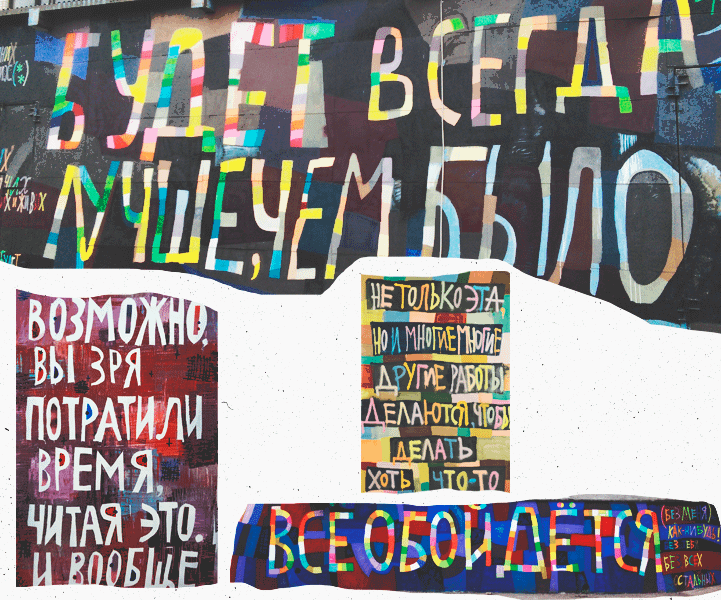 БУДЕТ ВСЕГДА
ЛУЧШЕ, ЧЕМ БЫЛО
ВОЗМОЖНО,
ВЫ ЗРЯ
ПОТРАТИЛИ
ВРЕМЯ,
ЧИТАЯ ЭТО.
И ВООБЩЕ
НЕ ТОЛЬКО ЭТА,
НО И МНОГИЕ МНОГИЕ
ДРУГИЕ РАБОТЫ
ДЕЛАЮТСЯ, ЧТОБЫ
ДЕЛАТЬ
ХОТЬ ЧТО-ТО
ВСЕ ОБОЙДЁТСЯ
(БЕЗ МЕНЯ)
КАК-НИБУДЬ!
БЕЗ ВСЕХ
ОСТАЛЬНЫХ